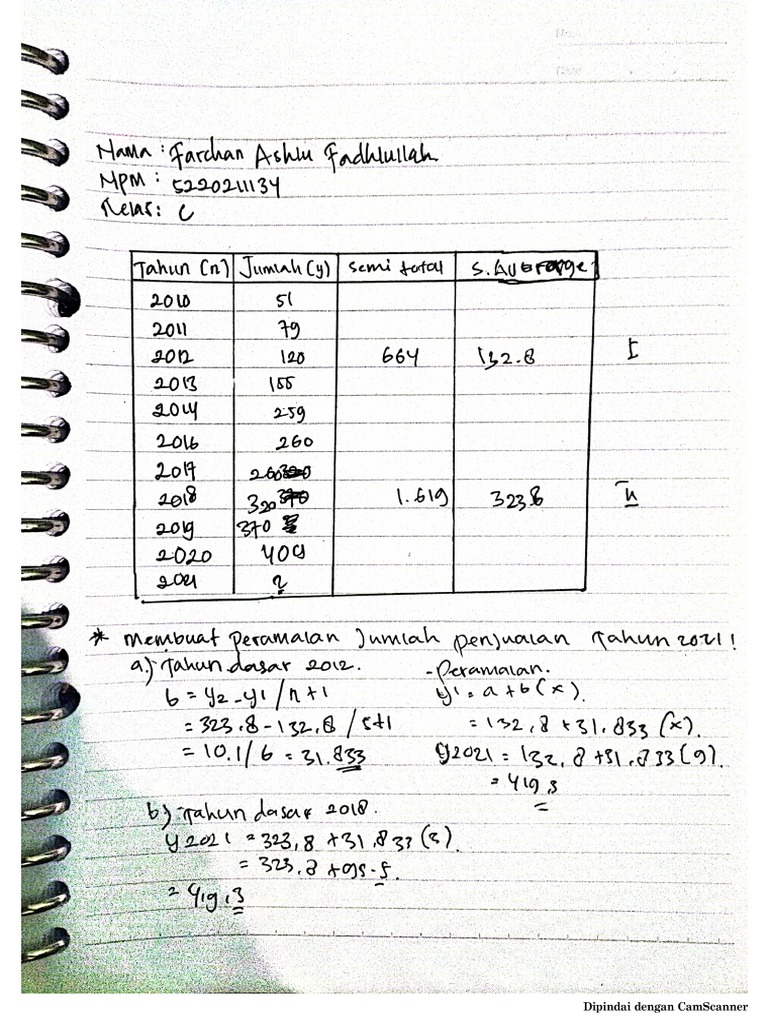 No.
Date
Nama : Farchan Ashlu Fadhlullah
NPM : 5220211134
Kelas : C
Tahun (n) Jumlah (y) semi total S. Average
2010 51
2011 79
2012 120 664 132.8 I
2013 155
2014 259
2016 260
2017 260
2018 320 1.619 323.8 II
2019 370
2020 409
2021 ?
* Membuat Peramalan Jumlah penjualan Tahun 2021!
a.) Tahun dasar 2012. - Peramalan.
b = y2 - y1 / n+1 y1 = a + b (x).
= 323.8 - 132.8 / 5+1 = 132,8 + 31.833 (x).
= 10.1/6 = 31.833 y2021 = 132,8 + 31.833 (9).
= 419,3
b) Tahun dasar 2018.
y2021 = 323,8 + 31.833 (3).
= 323.8 + 95.5.
= 419,3
Dipindai dengan CamScanner